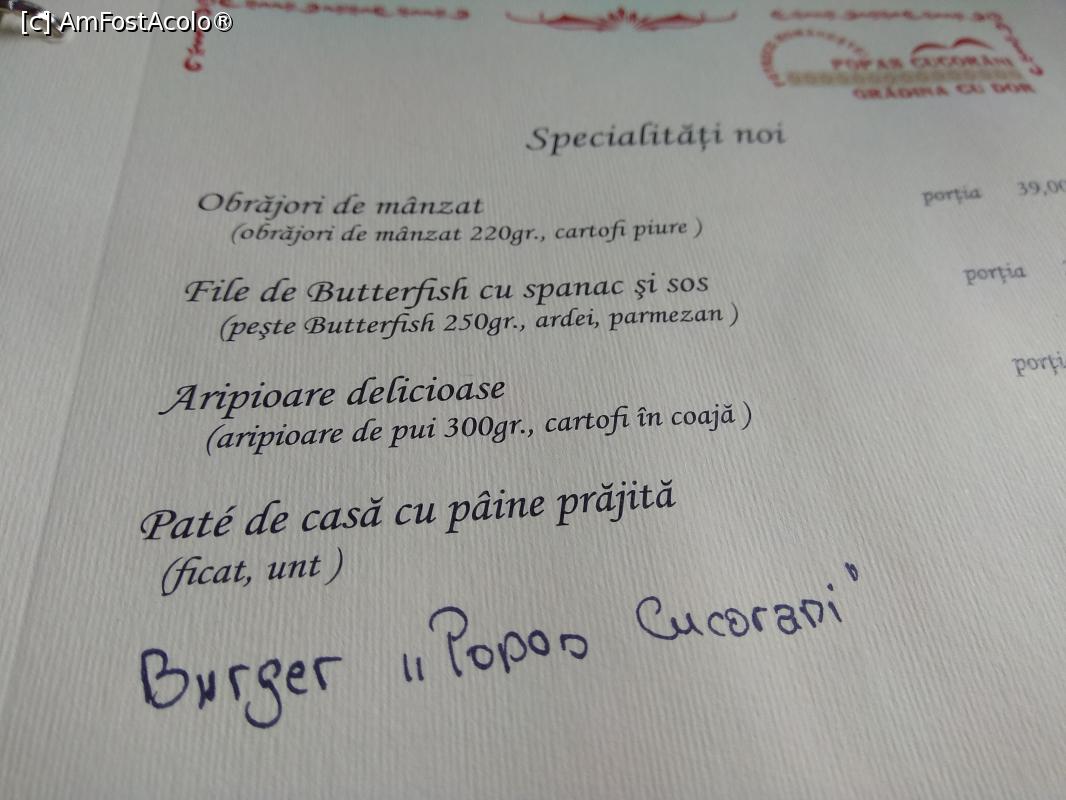 [c] AmFostAcolo®
POPAS CUCORĂNI
GRĂDINA CU DOR
Specialități noi
Obrăjori de mânzat porția 39,00
(obrăjori de mânzat 220gr., cartofi piure )
File de Butterfish cu spanac și sos porția
(pește Butterfish 250gr., ardei, parmezan )
Aripioare delicioase porți
(aripioare de pui 300gr., cartofi în coajă )
Paté de casă cu pâine prăjită
(ficat, unt )
Burger „Popas Cucorani"